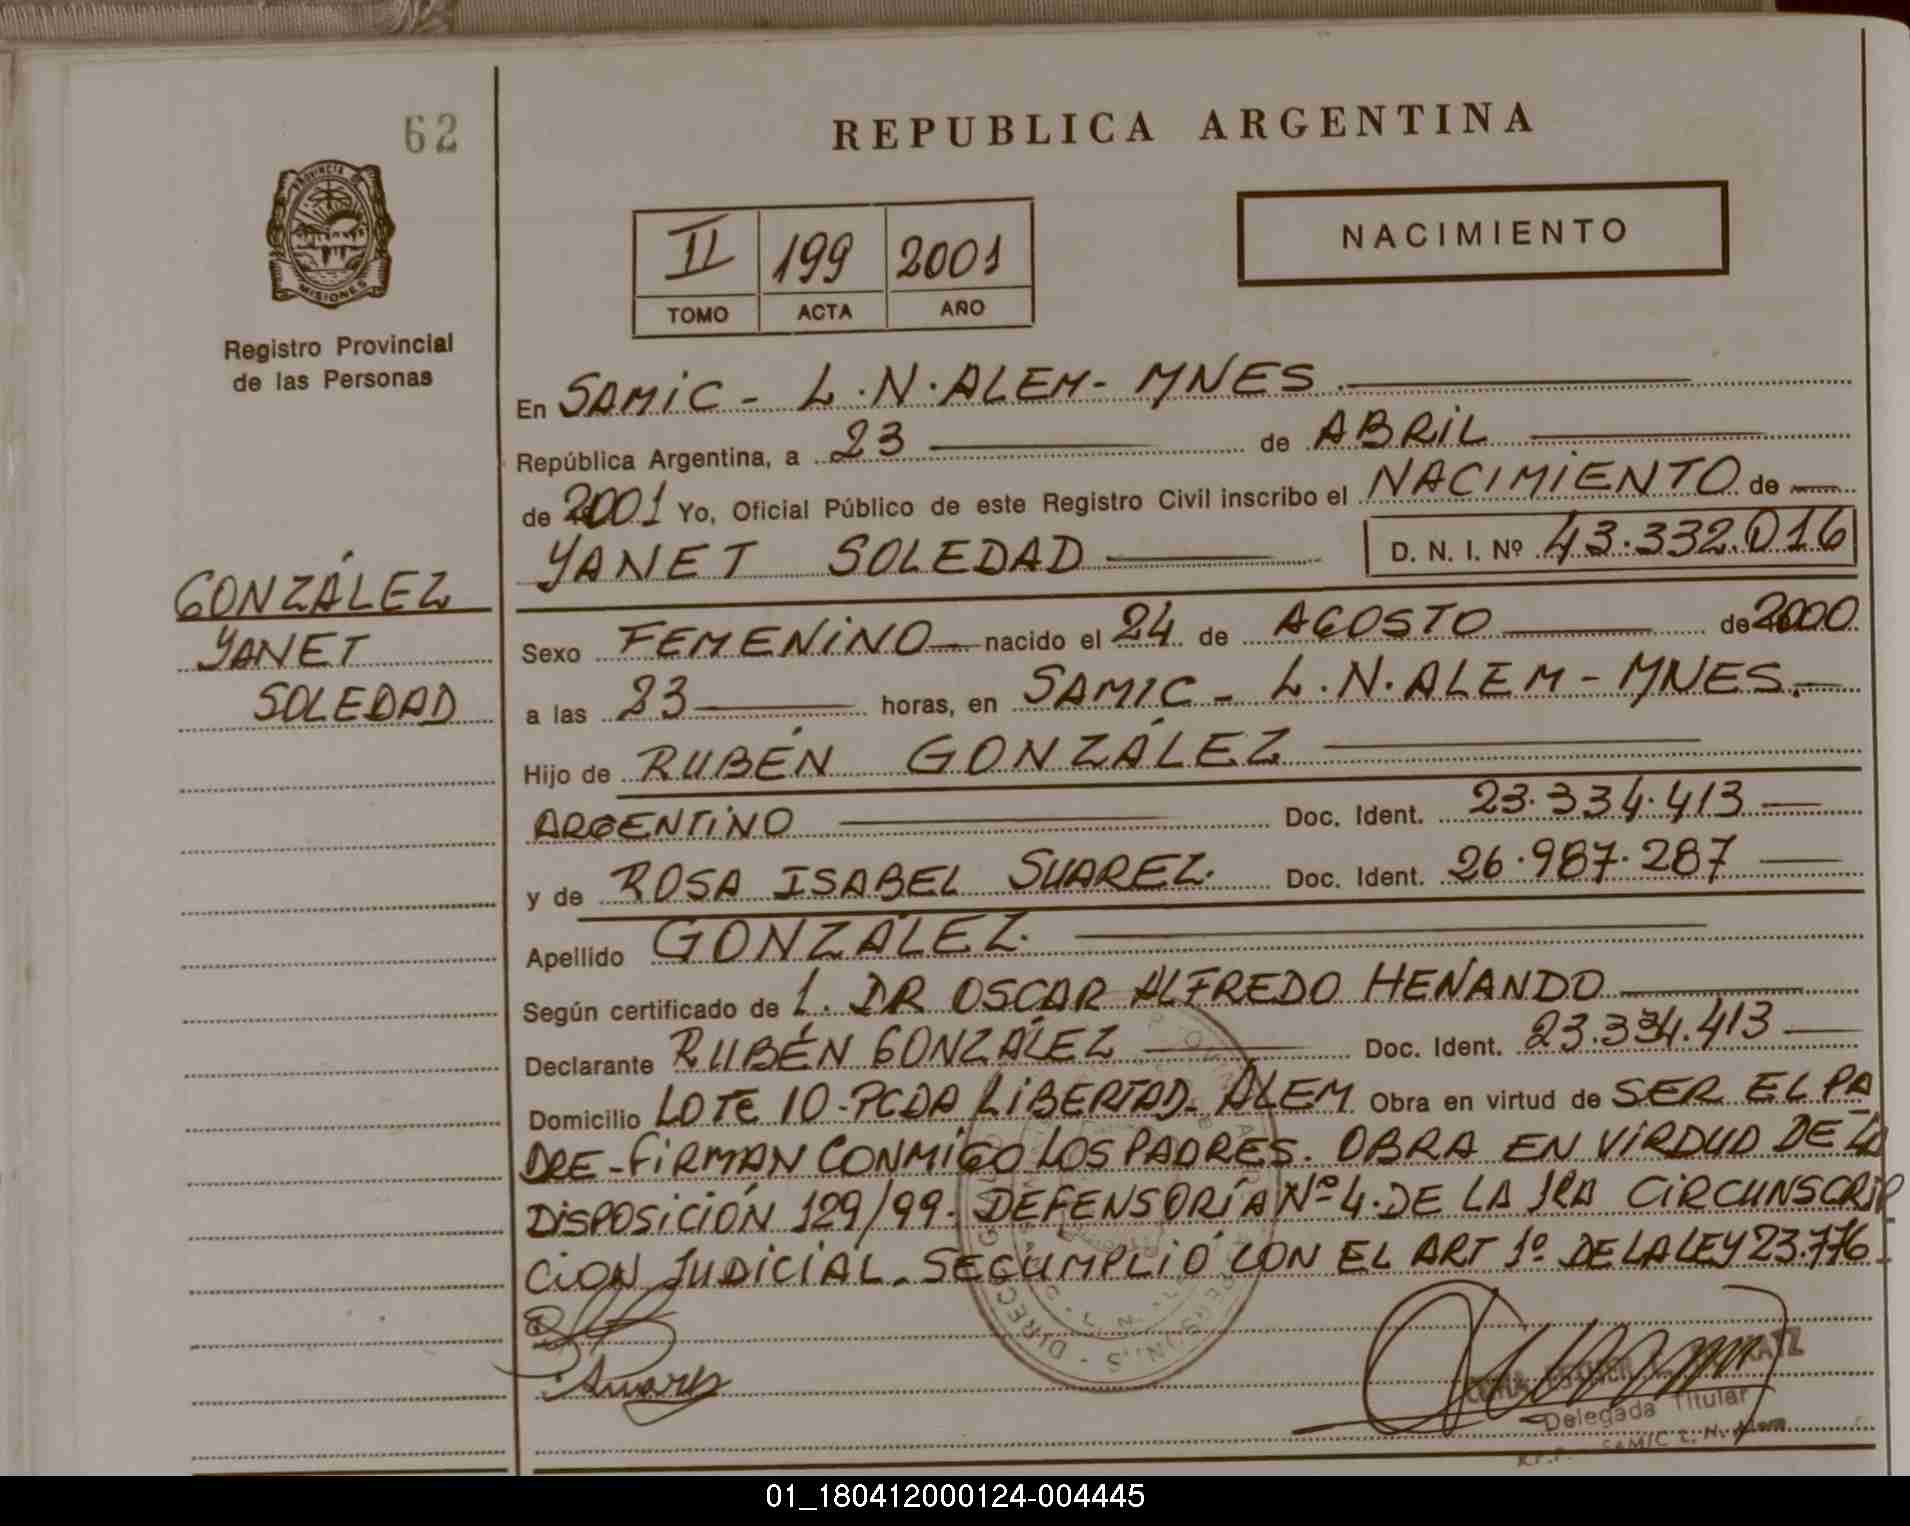 62
REPUBLICA ARGENTINA
PROVINCIA DE
MISIONES
Registro Provincial
de las Personas
II 199 2001
TOMO ACTA AÑO
NACIMIENTO
En SAMIC - L.N.ALEM - MNES.
República Argentina, a 23 de ABRIL
de 2001 Yo, Oficial Público de este Registro Civil inscribo el NACIMIENTO de
YANET SOLEDAD D. N. I. Nº 43.332.016
GONZÁLEZ
YANET
SOLEDAD
Sexo FEMENINO nacido el 24 de AGOSTO de 2000
a las 23 horas, en SAMIC - L.N.ALEM - MNES.
Hijo de RUBÉN GONZÁLEZ
ARGENTINO Doc. Ident. 23.334.413
y de ROSA ISABEL SUAREZ. Doc. Ident. 26.987.287
Apellido GONZÁLEZ.
Según certificado de 1. DR OSCAR ALFREDO HENANDO
Declarante RUBÉN GONZÁLEZ Doc. Ident. 23.334.413
Domicilio LOTE 10-PCDA LIBERTAD- ALEM Obra en virtud de SER EL PA
DRE-FIRMAN CONMIGO LOS PADRES. OBRA EN VIRDUD DE LA
DISPOSICIÓN 129/99. DEFENSORÍA Nº 4. DE LA 1RA CIRCUNSCRIP
CION JUDICIAL. SE CUMPLIO CON EL ART 1º DE LA LEY 23.776
Suarez
Delegada Titular
SAMIC L. N. Alem
01_180412000124-004445